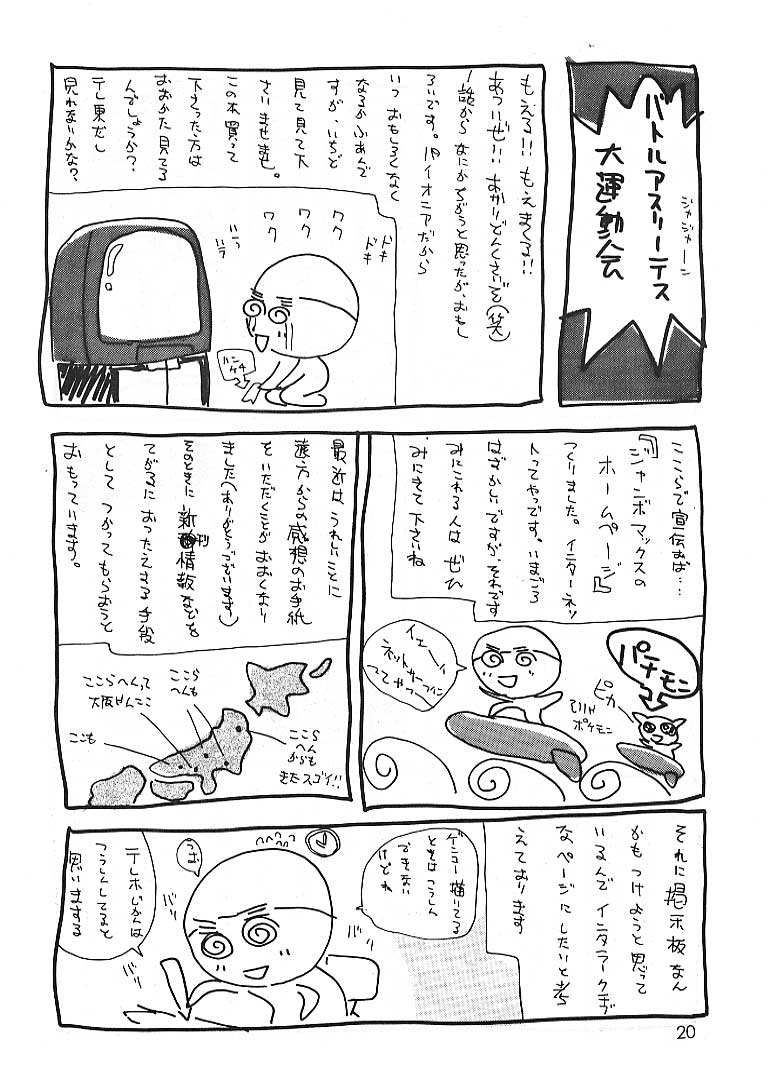 ジャジャーン
バトルアスリーテス
大運動会
もえる!!もえまくる!!
あついぜ!!あかりどんくさいぞ(笑)
一話からなにかちがうと思ったが、おもし
ろいです。パイオニアだから
いつおもしろくなく
なるかふあんで
すが、いちど
見て見て下
さいませませ。
この本買って
下さった方は
おおかた見てる
んでしょうか?
テレ東だし
見れないかな?
ドキ
ドキ
ワク
ワク
ワク
ハラ
ハラ
ハンケチ
ここらで宣伝おば…
『ジャンボマックスの
ホームページ』
つくりました。インターネッ
トってやつです。いまごろ
はずかしいですが、それです
みにこれる人はぜひ
みにきて下さいね
イェーッ
ネットサーフィン
ってやつー
パチモニ
ピカ
ひりゃ
ポケモニ
最近はうれしいことに
遠方からの感想のお手紙
をいただくことがおおくなり
ました(ありがとうございます)
そのときに新刊情報などを
てがるにおつたえする手段
としてつかってもらおうと
おもっています。
ここら
へんも
ここらへんって
大阪せんここ
ここも
ここら
へん
からも
きたスゴイ!!
それに掲示板なん
かもつけようと思って
いるんでインタラークチブ
なページにしたいと考
えております
ゲンコー描いてる
ときはこうしん
できない
けどね
うお
バリ
バリ
バリ
バリ
テレホじかんは
つうしんしてると
思いまする
20